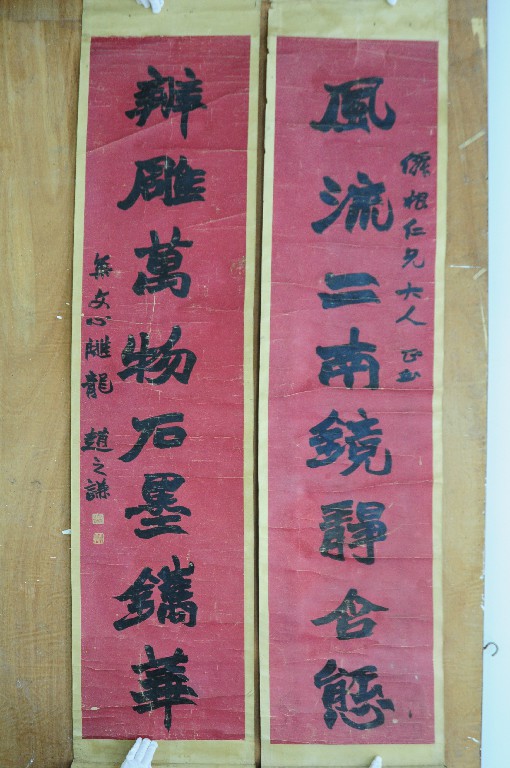 風流二南鏡靜含態
仁兄大人正
辦雕萬物石墨鐫華
集文心雕龍 趙之謙